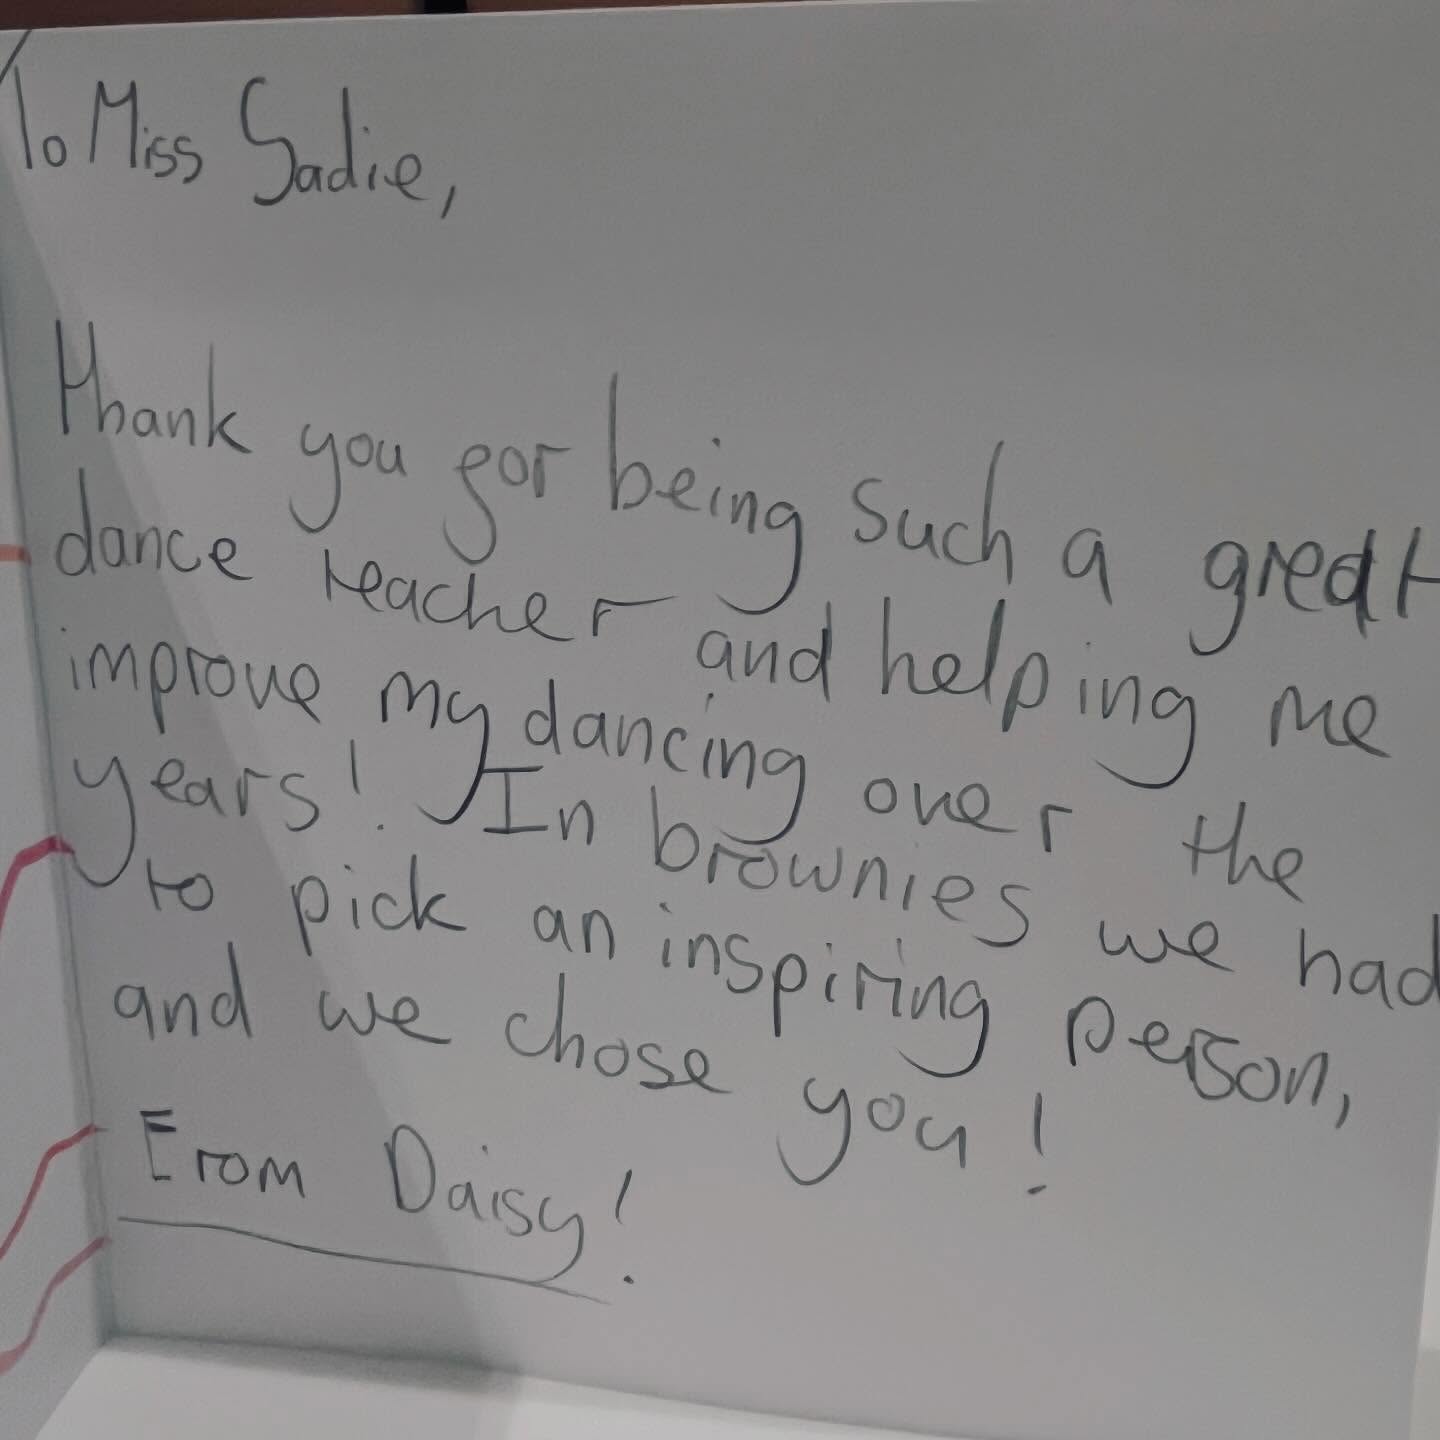 To Miss Sadie,
Thank you for being such a great
dance teacher and helping me
improve my dancing over the
years! In brownies we had
to pick an inspiring person,
and we chose you!
From Daisy!